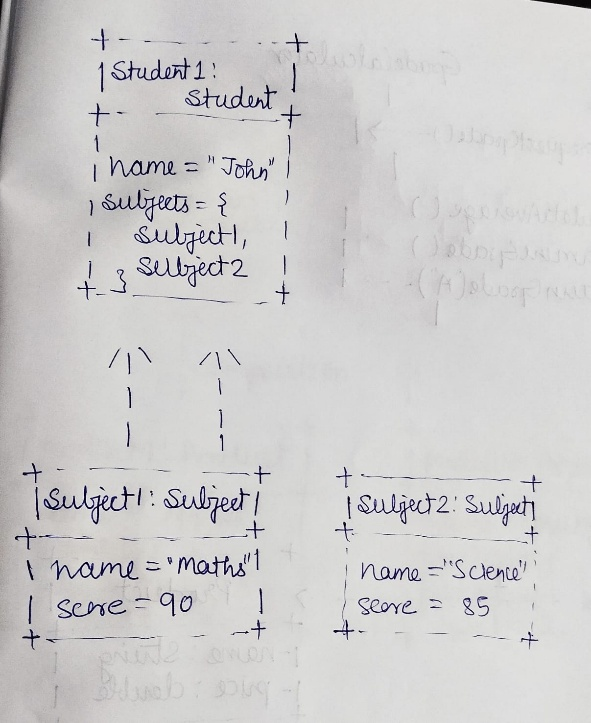 Student1:
Student
name = "John"
Subjects = {
Subject1,
Subject2
}
Subject1: Subject
name = "maths"
score = 90
Subject2: Subject
name = "Science"
score = 85